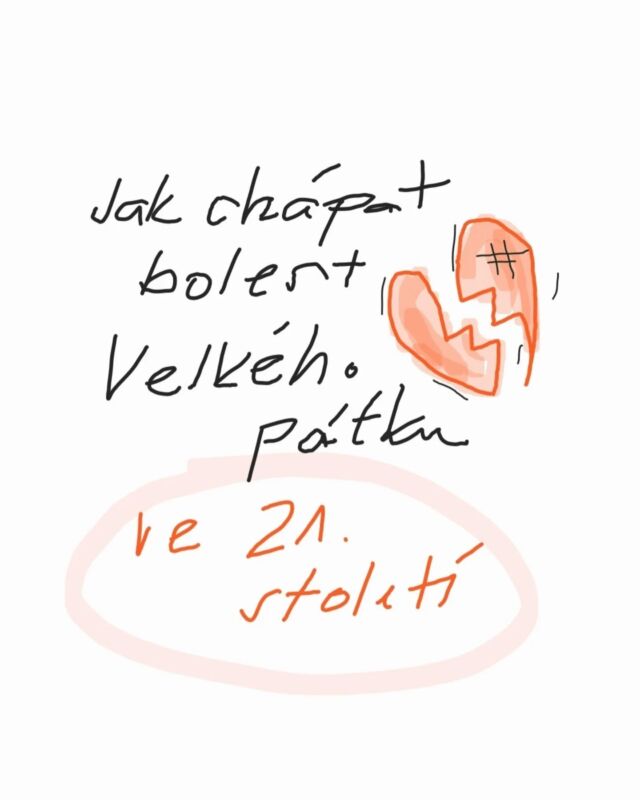 Jak chápat
bolest
Velkého
pátku
ve 21.
století